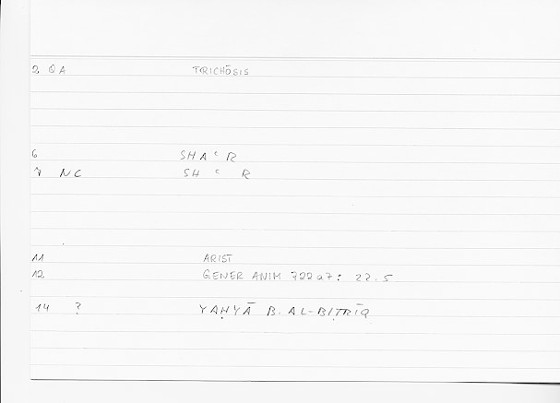 2 QA TRICHŌSIS
6 SHAʿR
7 NC SH ʿ R
11 ARIST
12 GENER ANIM 722a7: 22.5
14 ? YAḤYĀ B. AL-BIṬRĪQ